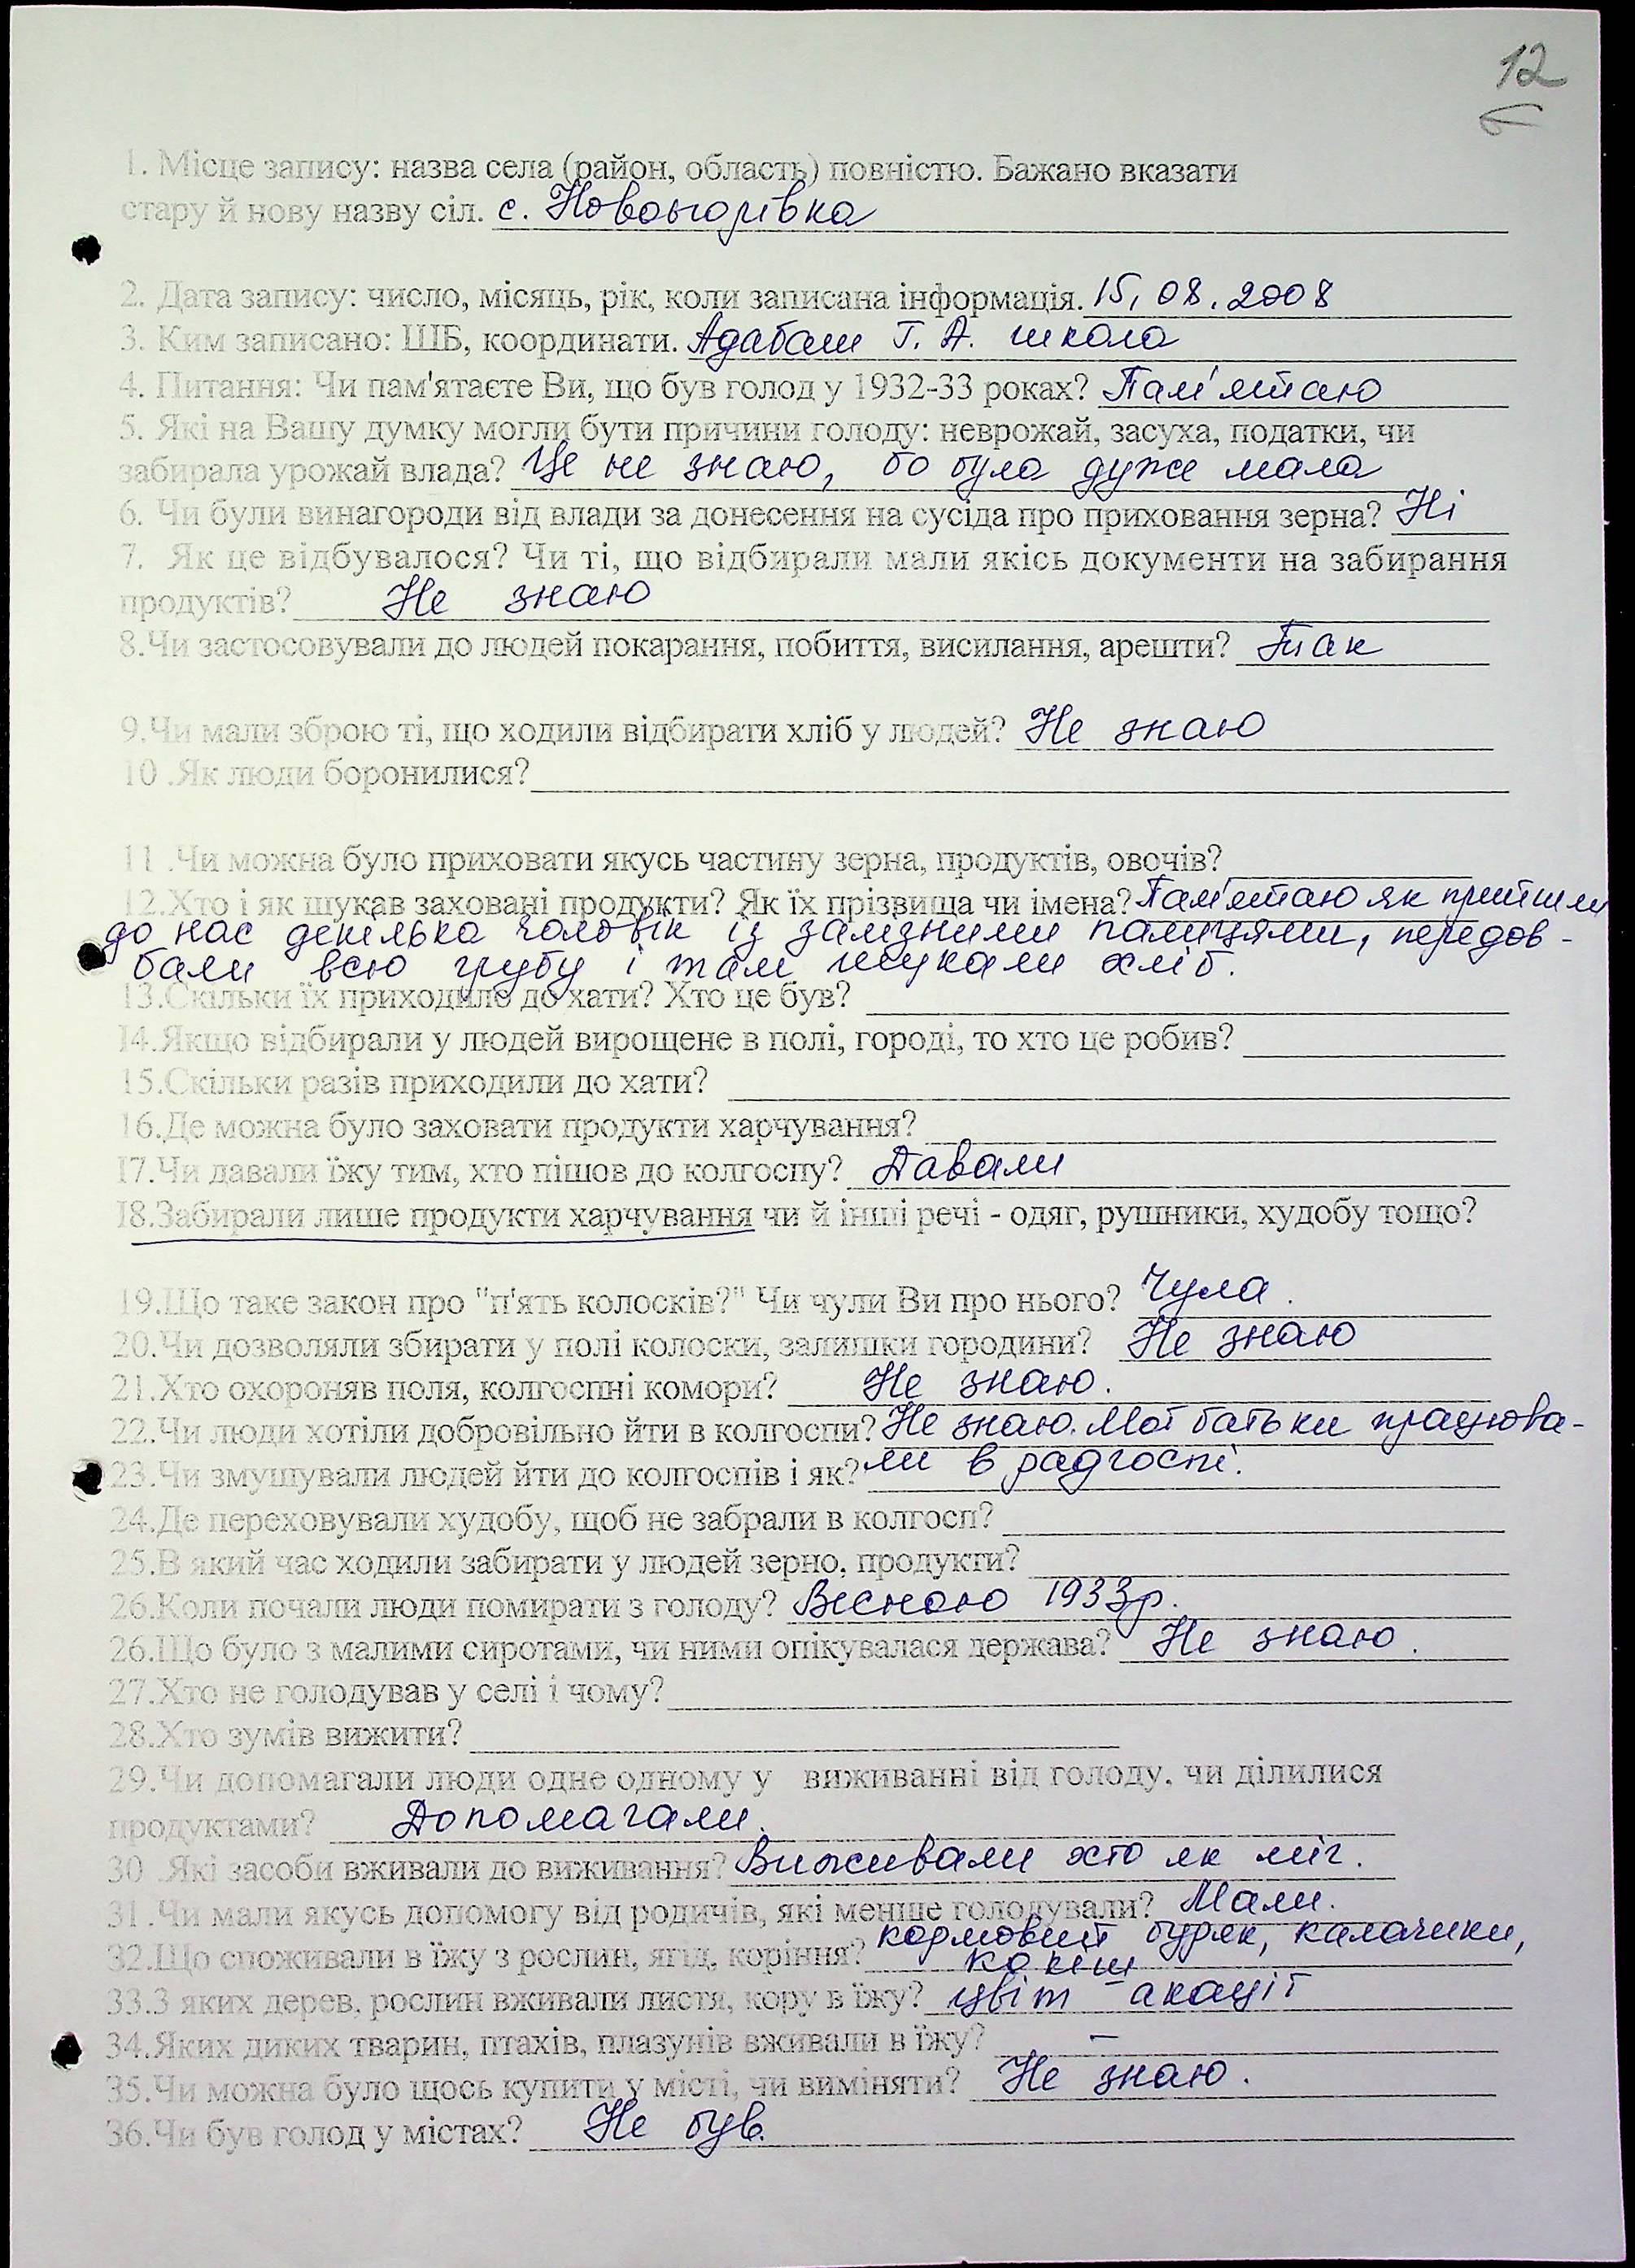 12
1. Місце запису: назва села (район, область) повністю. Бажано вказати
стару й нову назву сіл. с. Новоігорівка
2. Дата запису: число, місяць, рік, коли записана інформація. 15, 08. 2008
3. Ким записано: ШБ, координати. Адабаш Г. А. школа
4. Питання: Чи пам'ятаєте Ви, що був голод у 1932-33 роках? Пам'ятаю
5. Які на Вашу думку могли бути причини голоду: неврожай, засуха, податки, чи
забирала урожай влада? Це не знаю, бо була дуже мала
6. Чи були винагороди від влади за донесення на сусіда про приховання зерна? Ні
7. Як це відбувалося? Чи ті, що відбирали мали якісь документи на забирання
продуктів? Не знаю
8.Чи застосовували до людей покарання, побиття, висилання, арешти? Так
9.Чи мали зброю ті, що ходили відбирати хліб у людей? Не знаю
10 .Як люди боронилися?
11 .Чи можна було приховати якусь частину зерна, продуктів, овочів?
12.Хто і як шукав заховані продукти? Як їх прізвища чи імена? Пам'ятаю як прийшли
до нас декілька чоловік із залізними палицями, передов-
бали всю грубу і там шукали хліб.
13.Скільки їх приходило до хати? Хто це був?
14.Якщо відбирали у людей вирощене в полі, городі, то хто це робив?
15.Скільки разів приходили до хати?
16.Де можна було заховати продукти харчування?
17.Чи давали їжу тим, хто пішов до колгоспу? Давали
18.Забирали лише продукти харчування чи й інші речі - одяг, рушники, худобу тощо?
19.Що таке закон про "п'ять колосків?" Чи чули Ви про нього? Чула.
20.Чи дозволяли збирати у полі колоски, залишки городини? Не знаю
21.Хто охороняв поля, колгоспні комори? Не знаю.
22.Чи люди хотіли добровільно йти в колгоспи? Не знаю. Мої батьки працюва-
23.Чи змушували людей йти до колгоспів і як? ли в радгоспі.
24.Де переховували худобу, щоб не забрали в колгосп?
25.В який час ходили забирати у людей зерно, продукти?
26.Коли почали люди помирати з голоду? Весною 1933р.
26.Що було з малими сиротами, чи ними опікувалася держава? Не знаю.
27.Хто не голодував у селі і чому?
28.Хто зумів вижити?
29.Чи допомагали люди одне одному у виживанні від голоду, чи ділилися
продуктами? Допомагали.
30 .Які засоби вживали до виживання? Виживали хто як міг.
31.Чи мали якусь допомогу від родичів, які менше голодували? Мали.
32.Що споживали в їжу з рослин, ягід, коріння? кормовий буряк, калачики,
кокіш
33.З яких дерев, рослин вживали листя, кору в їжу? цвіт акації
34.Яких диких тварин, птахів, плазунів вживали в їжу? –
35.Чи можна було щось купити у місті, чи виміняти? Не знаю.
36.Чи був голод у містах? Не був.